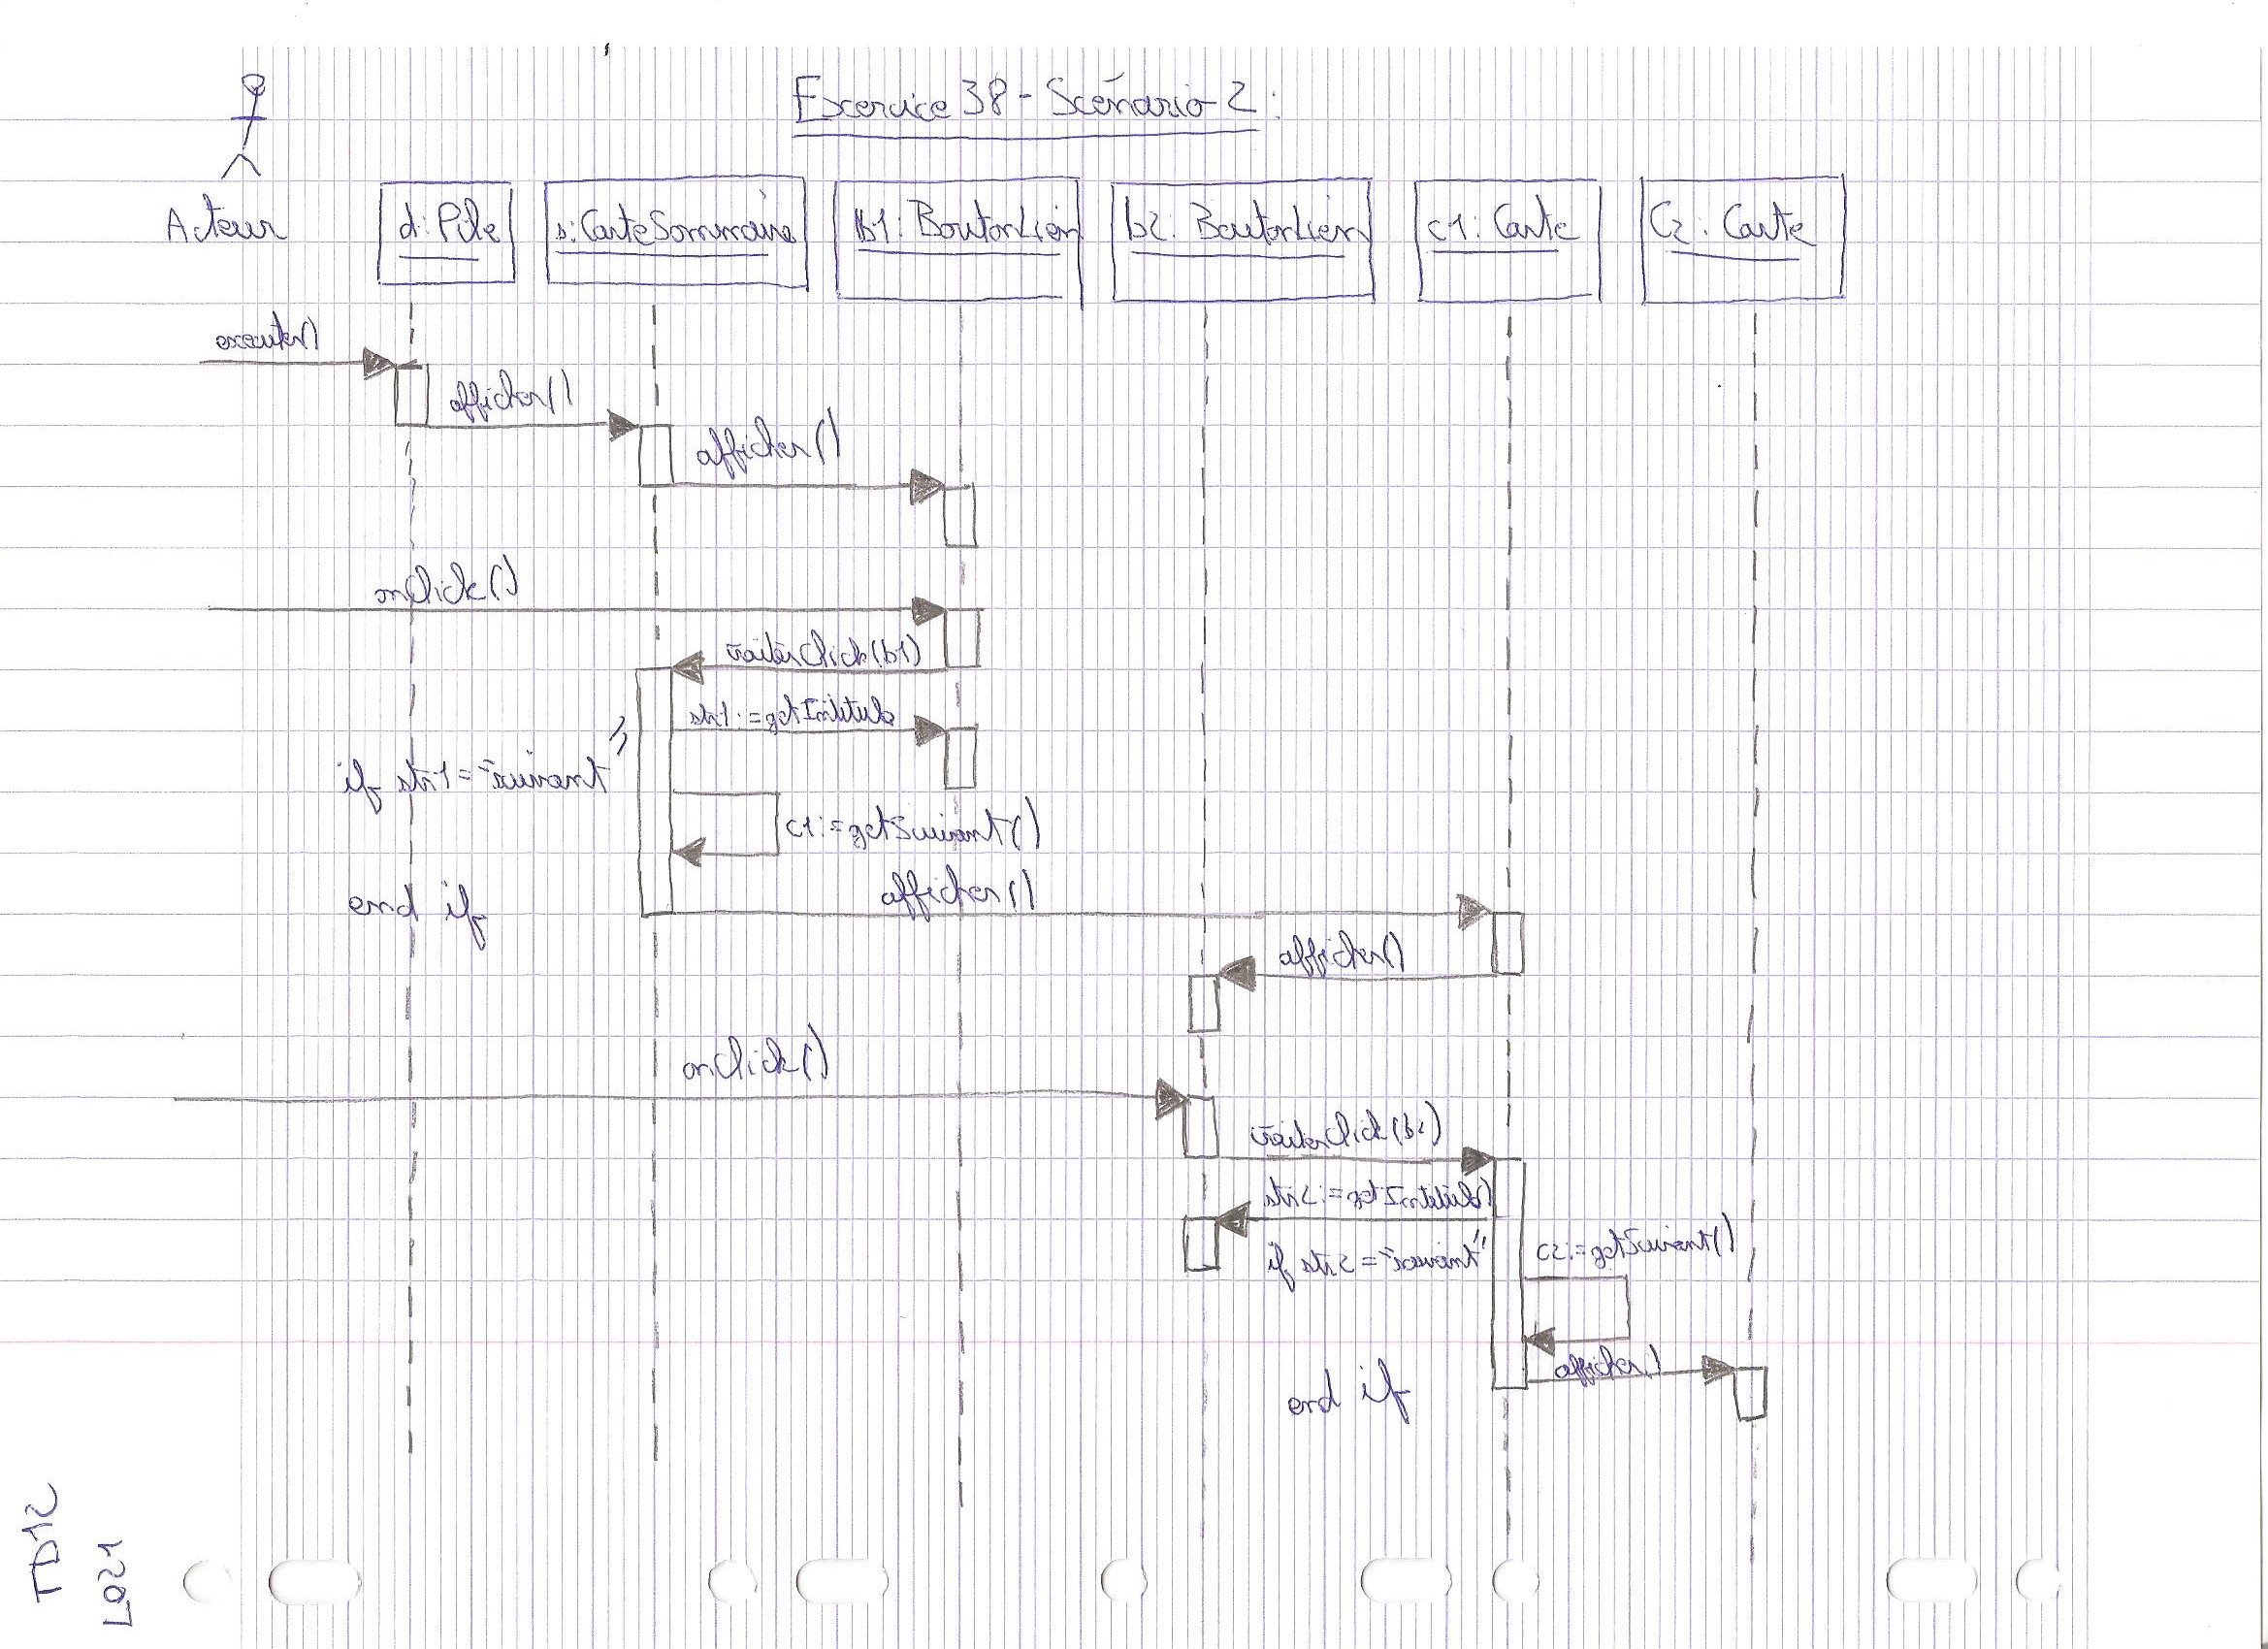 Excercice 38 - Scénario 2 :
Acteur
d : Pile
s : CarteSommaire
b1 : BoutonLien
b2 : BoutonLien
c1 : Carte
C2 : Carte
executer()
afficher()
afficher()
onClick()
traiterClick(b1)
str1 := getIntitule
if str1 = "suivant"
c1 := getSuivant()
afficher()
end if
afficher()
onClick()
traiterClick(b2)
str2 := getIntitule()
c2 := getSuivant()
if str2 = "suivant"
afficher()
end if
TD12
LO21